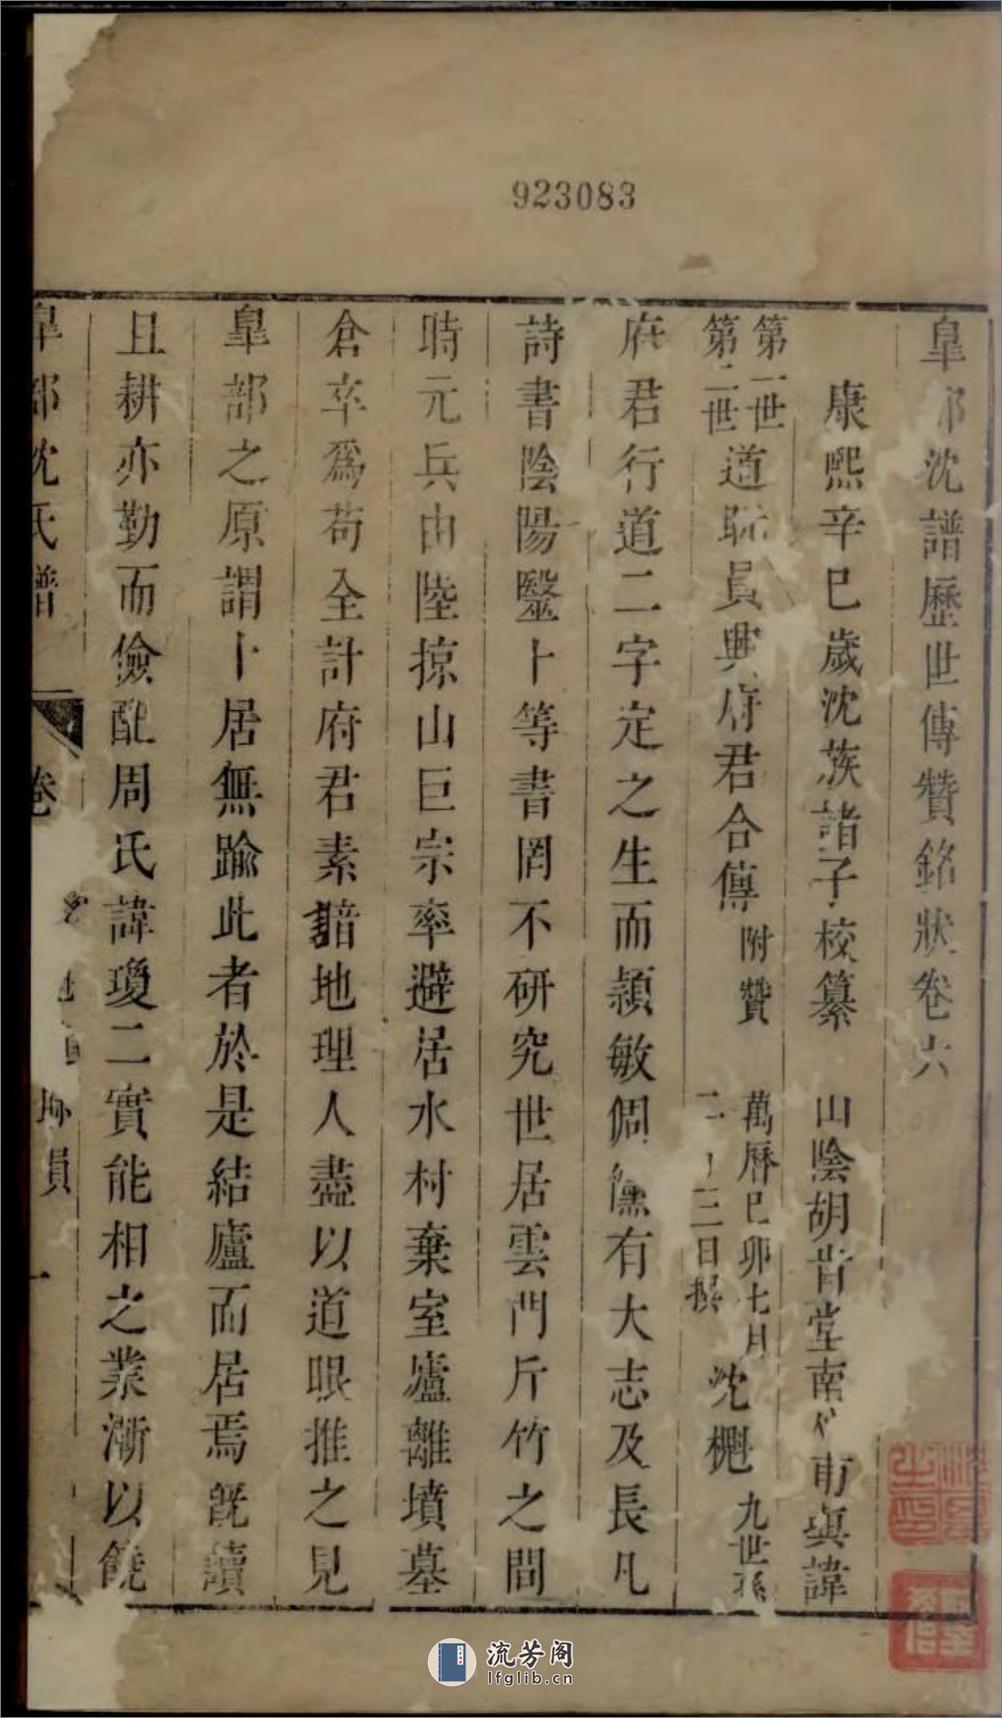 923083
皐部沈譜歷世傳贊銘狀卷六
康熙辛巳歲沈族諸子校纂 山陰胡肯堂南 甫輿諱
第一世
第二世
道耻員興府君合傳 附贊 萬曆己卯七月
二十三日撰 沈 九世孫
府君行道二字定之生而穎敏倜儻有大志及長凡
詩書陰陽醫卜等書罔不研究世居雲門斤竹之間
時元兵由陸掠山巨宗率避居水村棄室廬離墳墓
倉卒爲苟全計府君素諳地理人盡以道眼推之見
皐部之原謂卜居無踰此者於是結廬而居焉旣讀
且耕亦勤而儉配周氏諱瓊二實能相之業漸以饒
皐部沈氏譜 卷 員 一
流芳阁
lfglib.cn